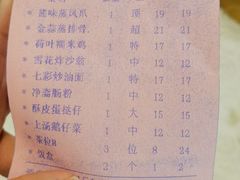 酱味蒸凤爪 1 顶 19 19
金蒜蒸排骨 1 超 21 21
荷叶糯米鸡 1 特 17 17
雪花炸沙翁 1 中 12 12
七彩炒油面 1 特 17 17
净斋肠粉 1 中 12 12
酥皮蛋挞仔 1 大 15 15
上汤鹅仔菜 1 中 12 12
茶位B 3 位 8 24
饭盒 2 个 1 2